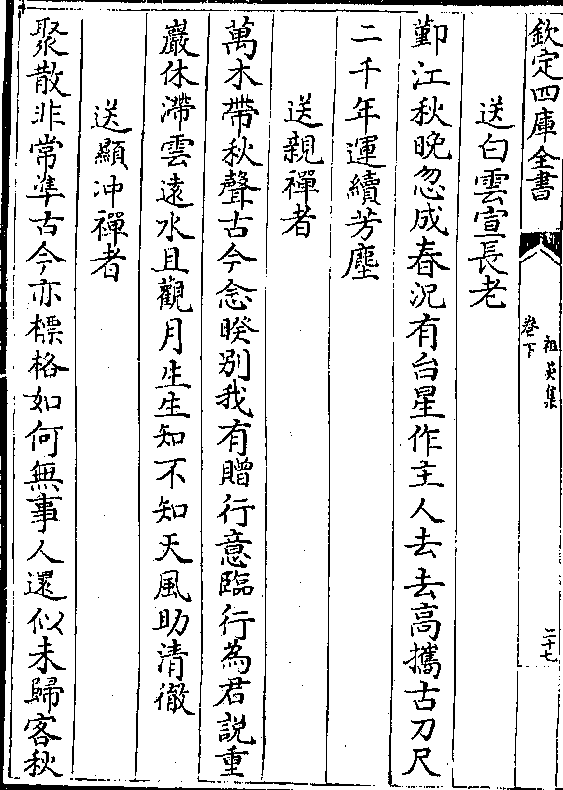 欽定四庫全書
祖英集
卷下
二十七
送白雲宣長老
鄞江秋晚忽成春況有台星作主人去去高攜古刀尺
二千年運續芳塵
送親禪者
萬木帶秋聲古今念暌別我有贈行意臨行為君說重
巖休滯雲遠水且觀月生生知不知天風助清徹
送顯冲禪者
聚散非常準古今亦標格如何無事人還似未歸客秋